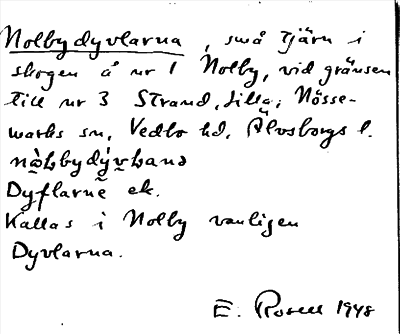 Nolbydyvlarna, små tjärn i
skogen å nr 1 Nolby, vid gränsen
till nr 3 Strand, Lilla; Nösse-
marks sn, Vedbo hd, Älvsborgs l.
Dyflarne ek.
Kallas i Nolby vanligen
Dyvlarna.
E. Rosell 1948